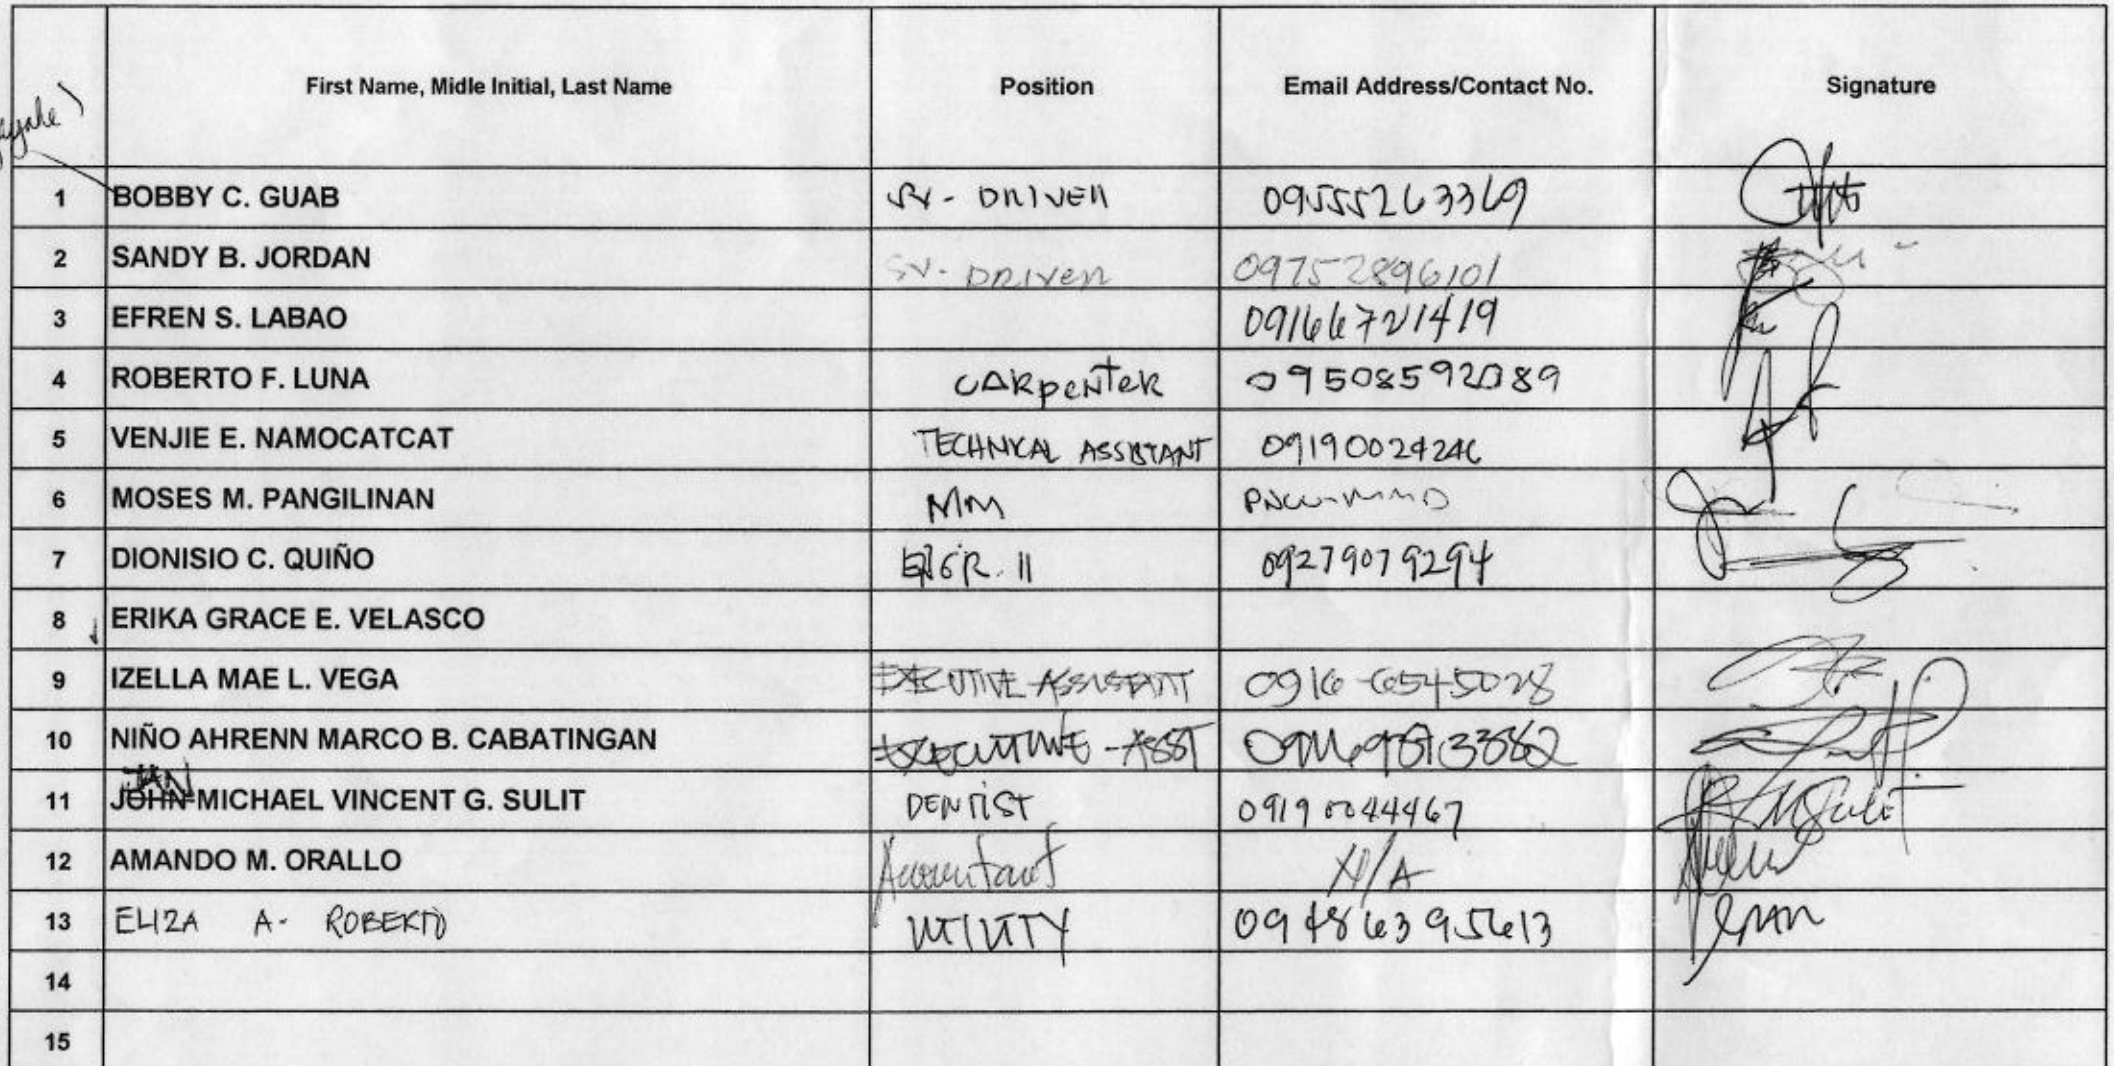 First Name, Midle Initial, Last Name Position Email Address/Contact No. Signature
1 BOBBY C. GUAB SV - DRIVER 09555263369
2 SANDY B. JORDAN SV - DRIVER 09752896101
3 EFREN S. LABAO 09166721419
4 ROBERTO F. LUNA CARPENTER 09508592089
5 VENJIE E. NAMOCATCAT TECHNICAL ASSISTANT 09190024246
6 MOSES M. PANGILINAN MM
7 DIONISIO C. QUIÑO ENGR. II 09279079294
8 ERIKA GRACE E. VELASCO
9 IZELLA MAE L. VEGA EXECUTIVE ASSISTANT 0916-6545028
10 NIÑO AHRENN MARCO B. CABATINGAN EXECUTIVE - ASST
JAN
11 JOHN MICHAEL VINCENT G. SULIT DENTIST 09190044467
12 AMANDO M. ORALLO Accountant N/A
13 ELIZA A. ROBERTO UTILITY 09486395613
14
15